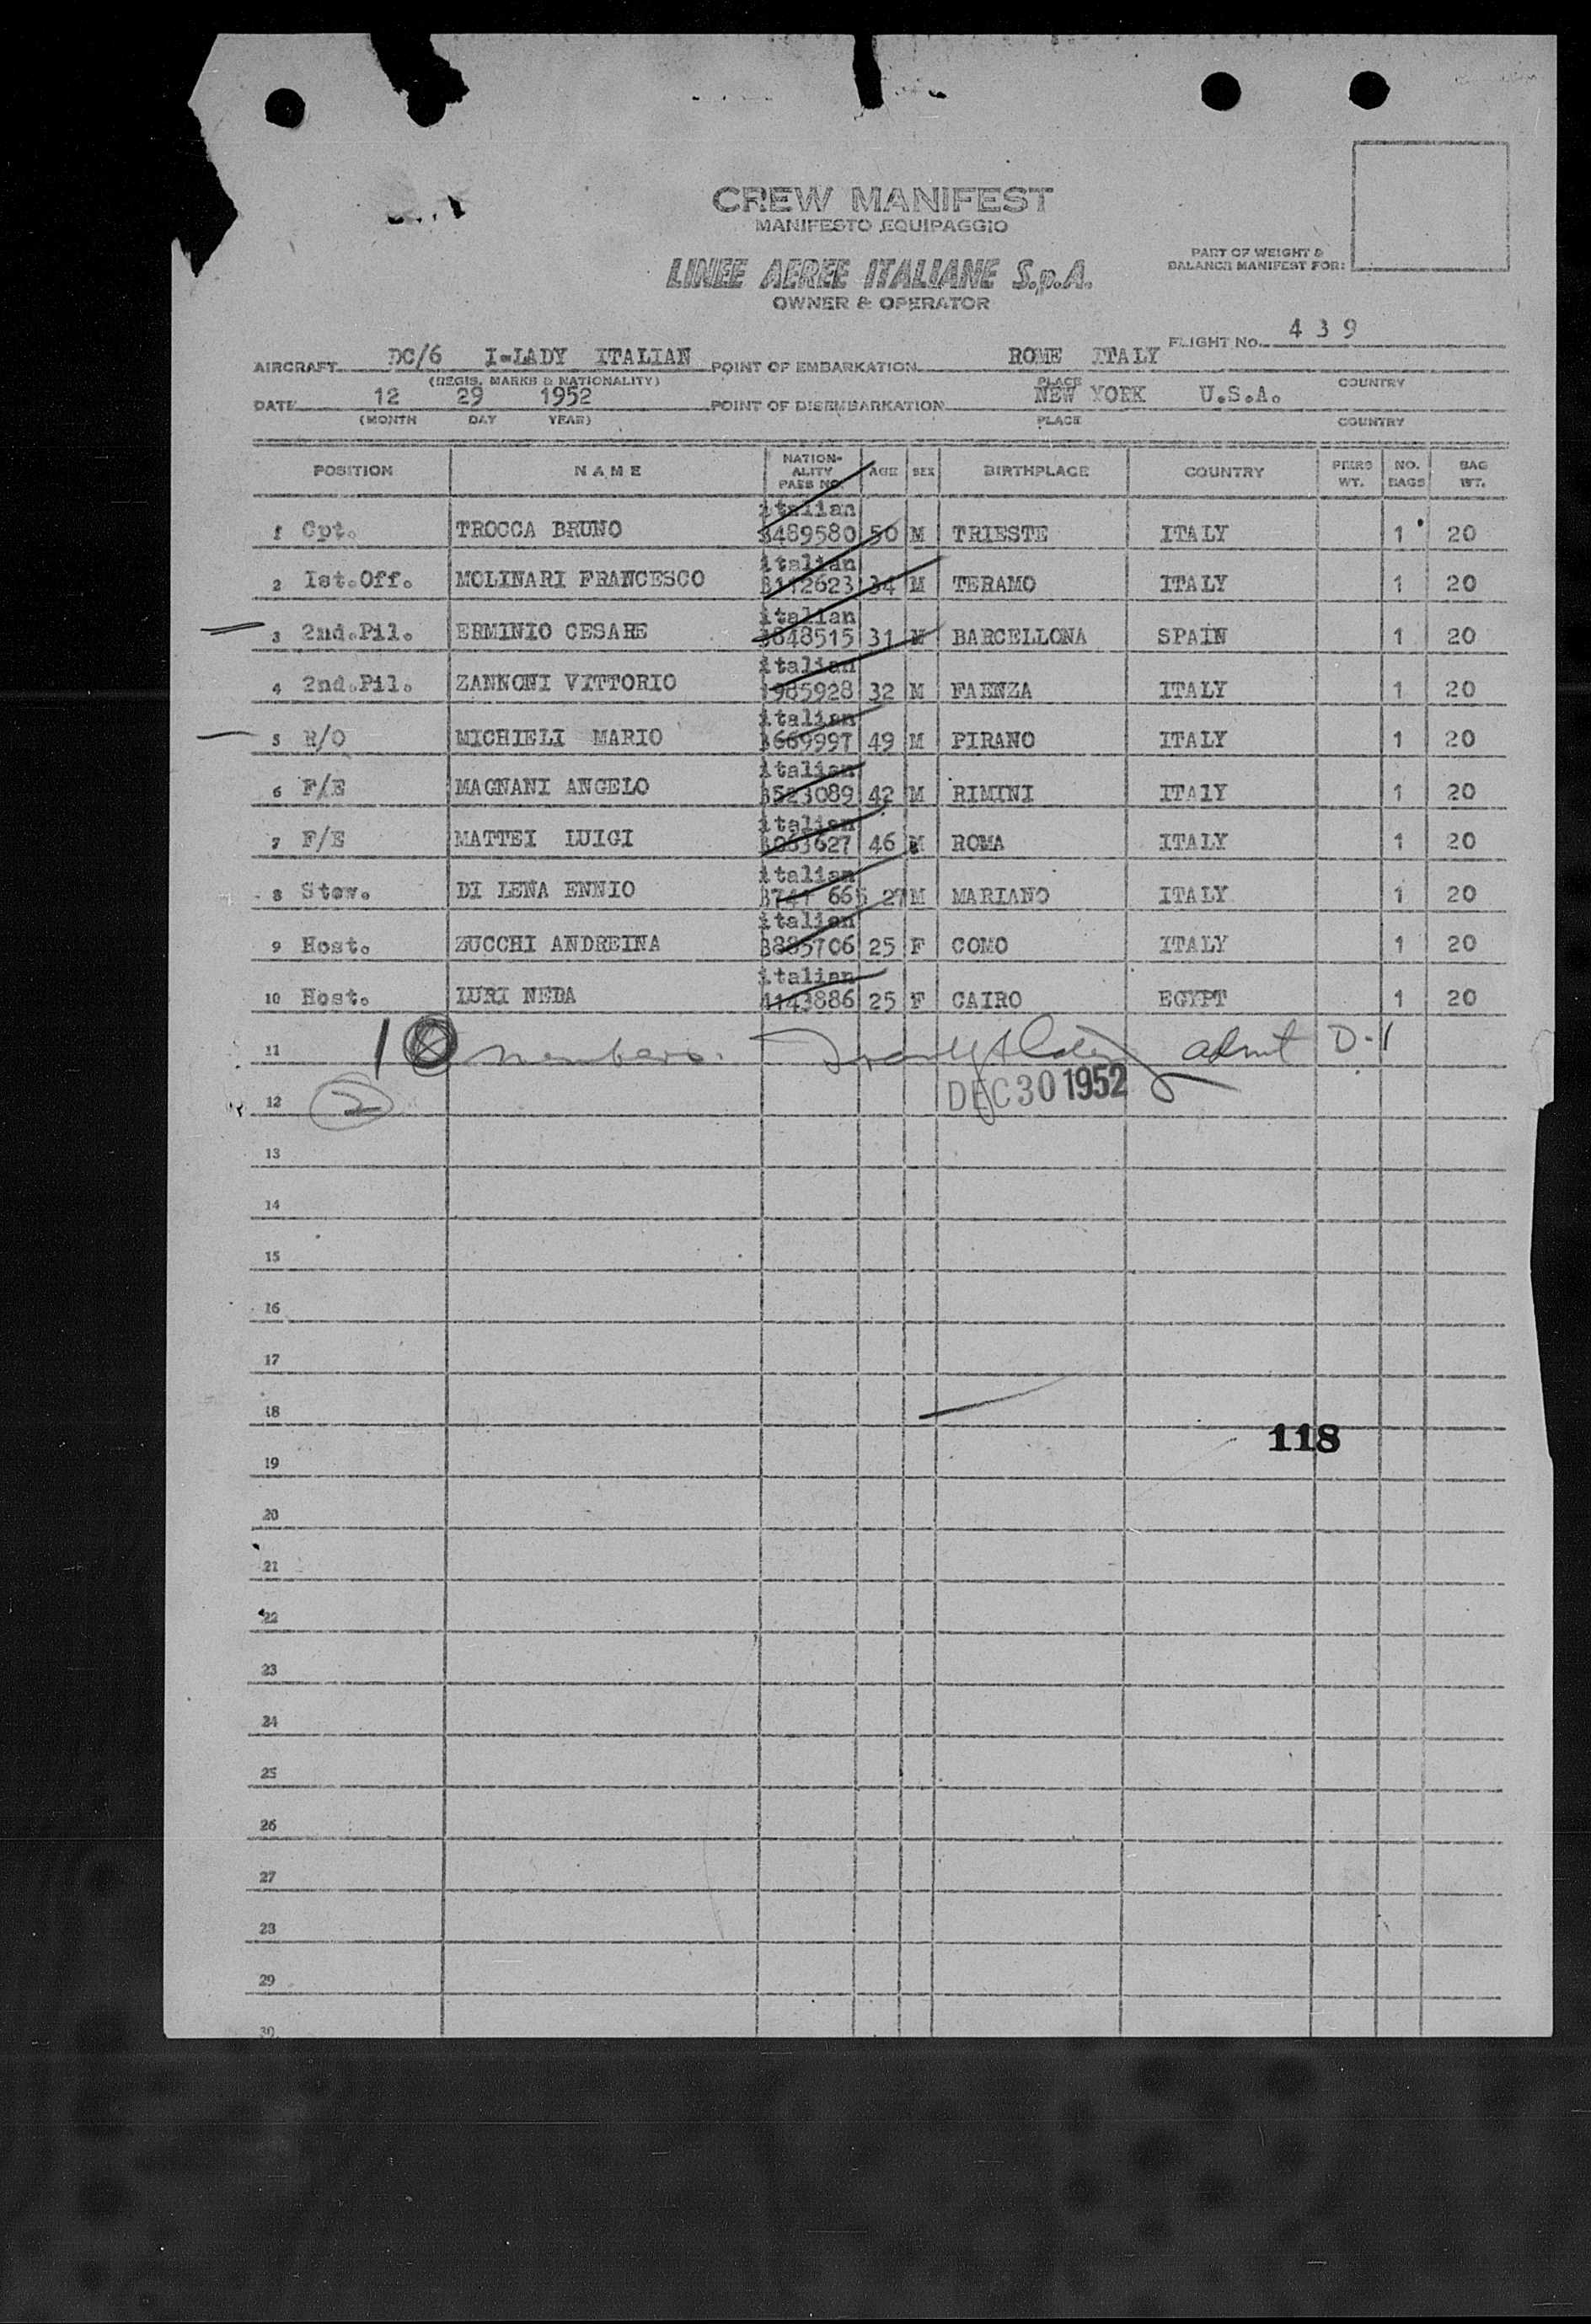 CREW MANIFEST
MANIFESTO EQUIPAGGIO
LINEE AEREE ITALIANE S.p.A.
OWNER & OPERATOR
PART OF WEIGHT &
BALANCE MANIFEST FOR:
FLIGHT No. 4 3 9
AIRCRAFT DC/6 I-LADY ITALIAN POINT OF EMBARKATION ROME ITALY
(REGIS. MARKS & NATIONALITY) PLACE COUNTRY
DATE 12 29 1952 POINT OF DISEMBARKATION NEW YORK U.S.A.
(MONTH DAY YEAR) PLACE COUNTRY
POSITION NAME NATION-ALITY PASS NO. AGE SEX BIRTHPLACE COUNTRY PIERS WT. NO. BAGS BAG WT.
1 Cpt. TROCCA BRUNO italian 3489580 50 M TRIESTE ITALY 1 20
2 Ist.Off. MOLINARI FRANCESCO italian 3112623 34 M TERAMO ITALY 1 20
3 2nd.Pil. ERMINIO CESARE italian 3648515 31 M BARCELLONA SPAIN 1 20
4 2nd.Pil. ZANNONI VITTORIO italian 1985928 32 M FAENZA ITALY 1 20
5 R/O MICHIELI MARIO italian 3669997 49 M PIRANO ITALY 1 20
6 F/E MAGNANI ANGELO italian 3523089 42 M RIMINI ITAlY 1 20
7 F/E MATTEI LUIGI italian 46 M ROMA ITALY 1 20
8 Stew. DI LENA ENNIO italian 3741 665 27 M MARIANO ITALY 1 20
9 Host. ZUCCHI ANDREINA italian 3885706 25 F COMO ITALY 1 20
10 Host. IURI NEDA italian 4143886 25 F CAIRO EGYPT 1 20
11 members. admit D-1
12 2 DEC 30 1952
13
14
15
16
17
18
118
19
20
21
22
23
24
25
26
27
28
29
30